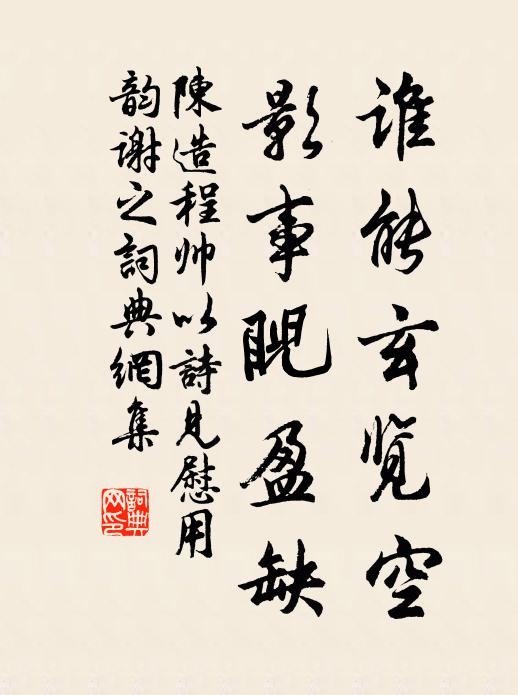 谁能玄览空
影事睨盈缺
陳造程帅以詩見慰用
韵谢之詞典網集
詞典网印